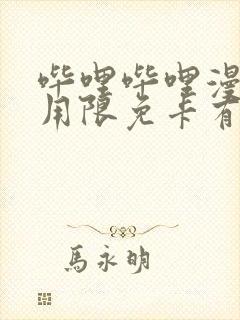 哔哩哔哩漫
用限免卡有
馬永明